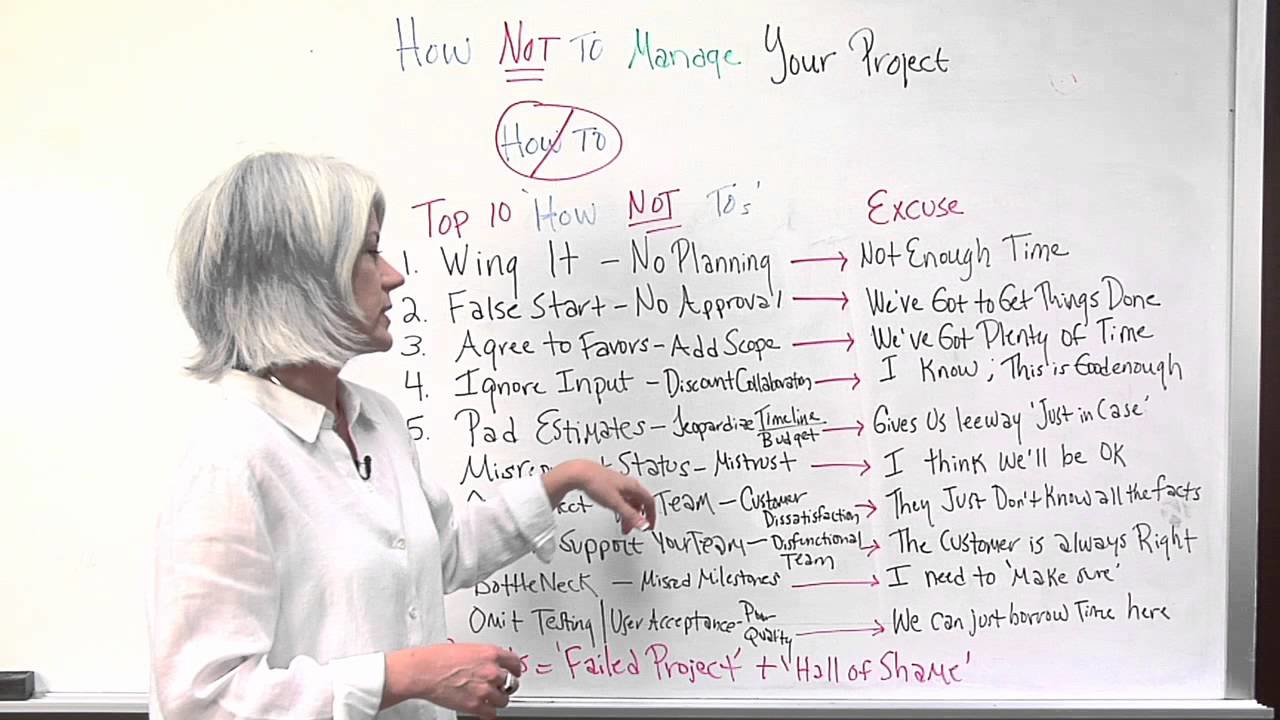 How NOT To Manage Your Project
How To
Top 10 'How NOT To's'
Excuse
1. Wing It - No Planning → Not Enough Time
2. False Start - No Approval → We've Got to Get Things Done
3. Agree to Favors - Add Scope → We've Got Plenty of Time
4. Ignore Input - Discount Collaboration → I Know; This is Good enough
5. Pad Estimates - Jeopardize Timeline Budget → Gives Us leeway 'Just in Case'
Status - Mistrust → I think We'll be OK
Team - Customer Dissatisfaction → They Just Don't Know all the facts
Support Your Team - Disfunctional Team → The Customer is always Right
BottleNeck - Missed Milestones → I need to 'Make sure'
Omit Testing | User Acceptance - Quality → We can just borrow Time here
= 'Failed Project' + 'Hall of Shame'